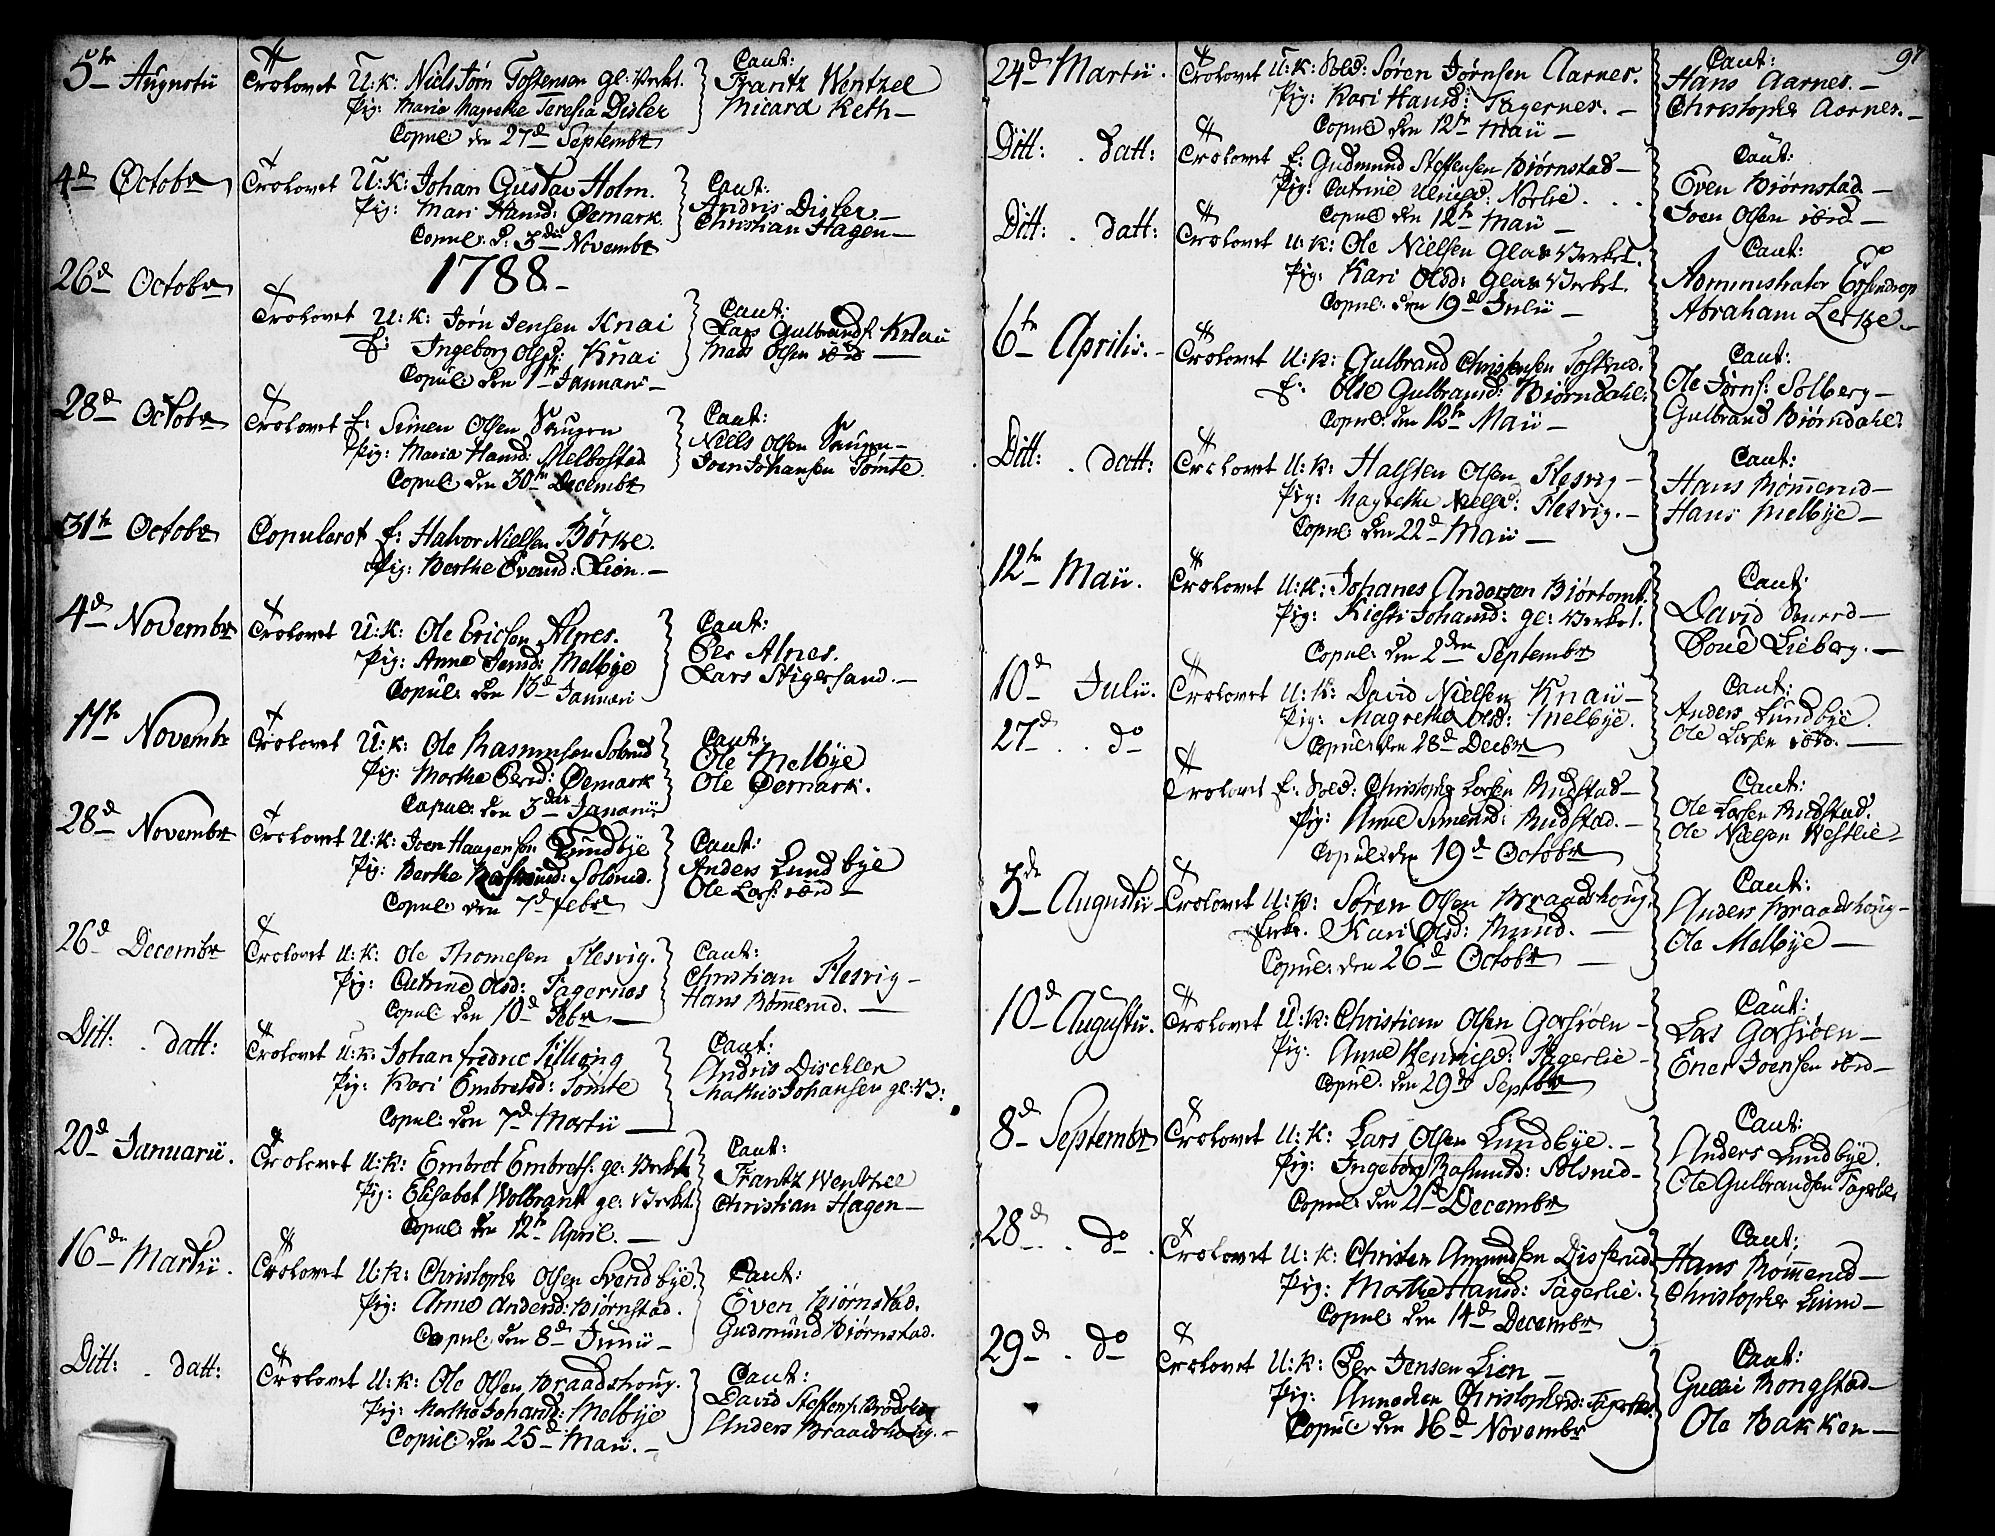 5te Augustii Trolovet U:K: Niels Jørn Tostensen gl: Verket.
Pig: Maria Magrethe Teresia Disler
Copul: den 27d Septembr
Caut:
Frantz Wentzel
Micard Keth
4d Octobr Trolovet U:K: Johan Gustav Holm.
Pig: Mari Hansd: Øemark.
Copul: d: 3die Novembr
Caut:
Andris Disler
Christian Hagen
1788
26d Octobr Trolovet U:K: Jørn Jensen Knai
E: Ingeborg Olsd: Knai
Copul: den 1te Januari
Caut:
Lars Gulbrands: Knai
Mads Olsen ibid
28d Octobr Trolovet E: Simen Olsen Haugen
Pig: Maria Hansd: Melbostad
Copul den 30te Decembr
Caut:
Niels Olsen Haugen
Joen Johansen Tømte
31te Octobr Copuleret E: Halvor Nielsen Børke.
Pig: Berthe Evensd: Lien.
4d Novembr Trolovet U:K: Ole Ericsen Alnes.
Pig: Anne Jensd: Melbye
Copul: den 13d Januari
Caut:
Per Alnes.
Lars Stigersand.
11te Novembr Trolovet U:K: Ole Rasmusen Solsrud
Pig: Marthe Persd: Øemark
Copul: den 3die Januarii
Caut:
Ole Melbye
Ole Øemark.
28d Novembr Trolovet U:K: Joen Haagensen Lundbye
Pig: Berthe Rasmusd: Solsrud.
Copul: den 7d Febr
Caut:
Anders Lundbye
Ole Lars: ibid
26d Decembr Trolovet U:K: Ole Thomesen Flesvig.
Pig: Catrine Olsd: Fagernes
Copul: den 10d Febr
Caut:
Christian Flesvig
Hans Rømmerud.
Ditt: datt: Trolovet U:K: Johan Fredric
Pig: Kari Embretsd: Tømte
Copul: den 7d Martii
Caut:
Andris Dischler
Mathis Johansen gl:V:
20d Januarii. Trolovet U:K: Embret Embrets: gl: Verket
Pig: Elisabet Wolbrant gl: Verket.
Copul: den 12te April.
Caut:
Frantz Wentzel
Christian Hagen
16de Martii. Trolovet U:K: Christopher Olsen Svendbye.
Pig: Anne Andersd: Biørnstad.
Copul: den 8d Junii
Caut:
Even Biørnstad.
Gudmund Biørnstad.
Ditt: datt: Trolovet U:K: Ole Olsen Braadshoug.
Pig: Marthe Johansd: Melbye
Copul den 25d Maii.
Caut:
David Steffens:
Anders Braadshoug.
97
24d Martii. Trolovet U:K: Sold: Søren Jørnsen Aarnes.
Pig: Kari Hansd: Fagernes.
Copul den 12te Maii
Caut:
Hans Aarnes.
Christopher Aarnes.
Ditt: datt: Trolovet E: Gudmund Steffensen Biørnstad
Pig: Catrine Nordlie.
Copul den 12te Maii
Caut:
Even Biørnstad
Joen Olsen ibid
Ditt: datt: Trolovet U:K: Ole Nielsen Glas Verket.
Pig: Kari Olsd: Glas Verket.
Copul: den 19d Julii
Caut:
Administrator Esendrop
Abraham Lerke
6te Aprilis. Trolovet U:K: Gulbrand Christensen Toskrud.
E: Olse Gulbrandsd: Biørndahl:
Copul: den 12te Maii
Caut:
Ole Jørns: Solberg
Gulbrand Biørndahl:
Ditt: datt: Trolovet U:K: Halsten Olsen Flesvig
Pig: Magrethe Nielsd: Flesvig.
Copul: den 22d Maii
Caut:
Hans Rømmerud
Hans Melbye
12te Maii. Trolovet U:K: Johanes Andersen Biørtomt.
Pig: Kiesti Johansd: gl: Verket.
Copul: den 2den Septembr
Caut:
David
Povel Lieberg.
10d Julii. Trolovet U:K: David Nielsen Knaii
Pig: Magrethe Olsd: Melbye.
Copul: den 28d Decbr
Caut:
Anders Lundbye.
Ole Larsen ibid.
27d do Trolovet E: Sold: Christopher Larsen Rudstad
Pig: Anne Simensd: Rudstad.
Copul: den 19d Octobr
Caut:
Ole Larsen Rudstad.
Ole Nielsen Westlie
3de Augustii Trolovet U:K: Søren Olsen Braadshoug.
Enke. Kari Olsd: Ruud.
Copul: den 26d Octobr
Caut:
Anders Braadshoug
Ole Melbye
10d Augustii. Trolovet U:K: Christian Olsen Gaarsiøen
Pig: Anne Henricsd: Fagerlie
Copul. den 29de Septbr
Caut:
Lars Gaarsiøen
Ener Joensen ibid
8d Septembr Trolovet U:K: Lars Olsen Lundbye.
Pig: Ingeborg Rasmusd: Solsrud
Copul: den 21d Decembr
Caut:
Anders Lundbye.
Ole Gulbrandsen Fagerlie
28d do. Trolovet U:K: Christen Amundsen Disserud.
Pig: Marthe Hansd: Fagerlie.
Copul: den 14d Decembr
Caut:
Hans Rømmerud
Christopher Linne
29d do Trolovet U:K: Per Jensen Lien
Pig: Annichen Christophersd: Fagerlie.
Copul den 16d Novembr
Caut:
Gulli Rongstad
Ole Bakken